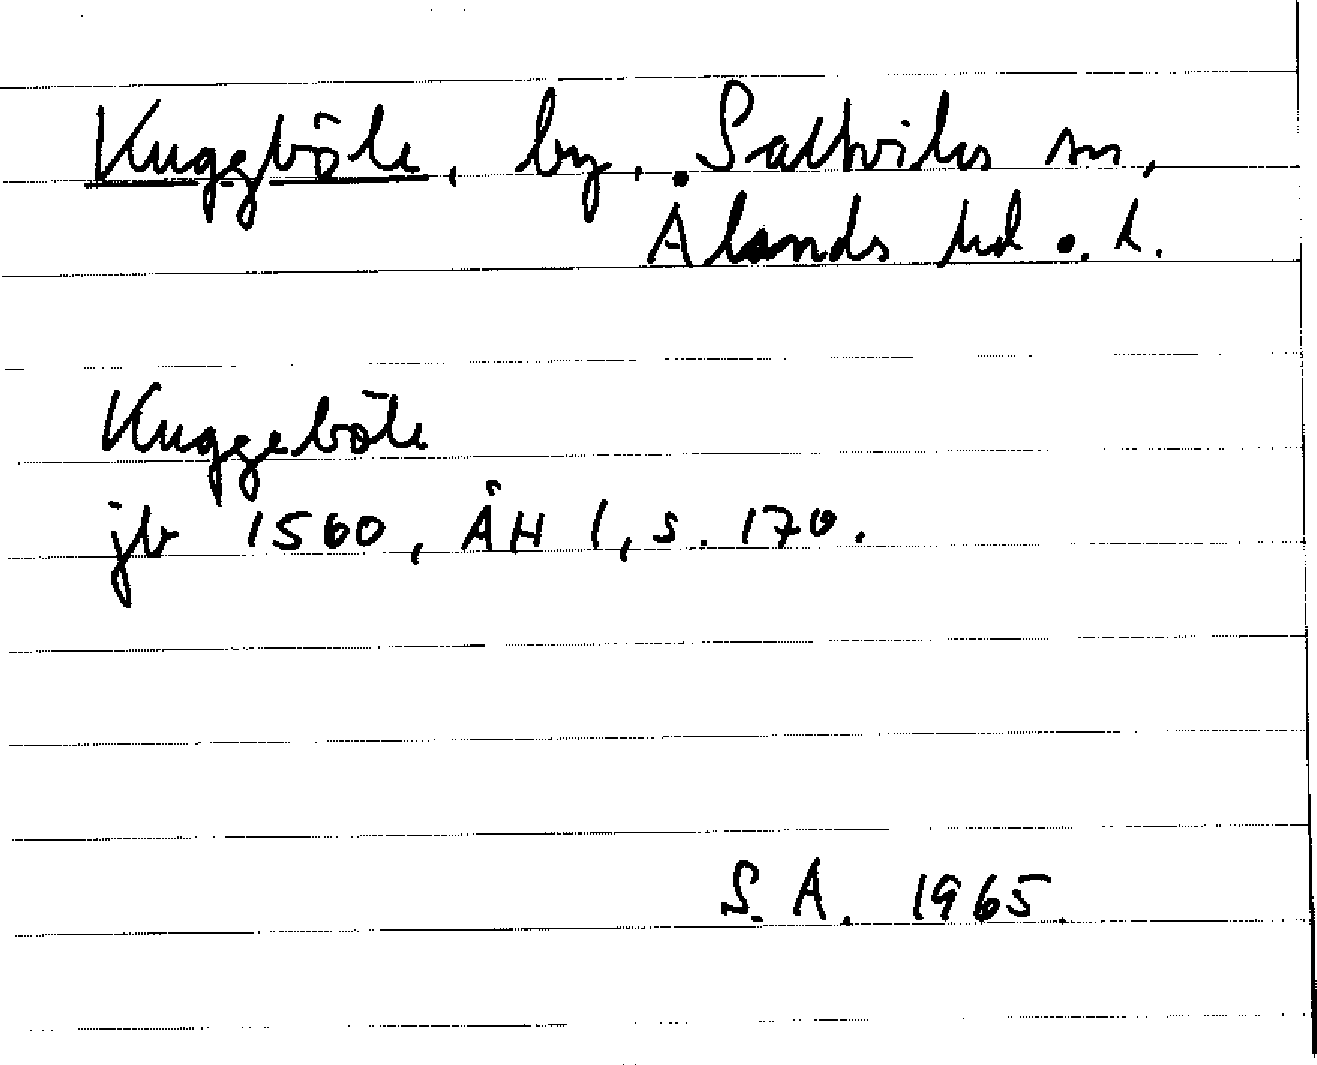 Kuggböle, by, Saltviks sn,
Ålands hd o. l.
Kuggeböle
jb 1560, ÅH 1, s. 170.
S. A. 1965.